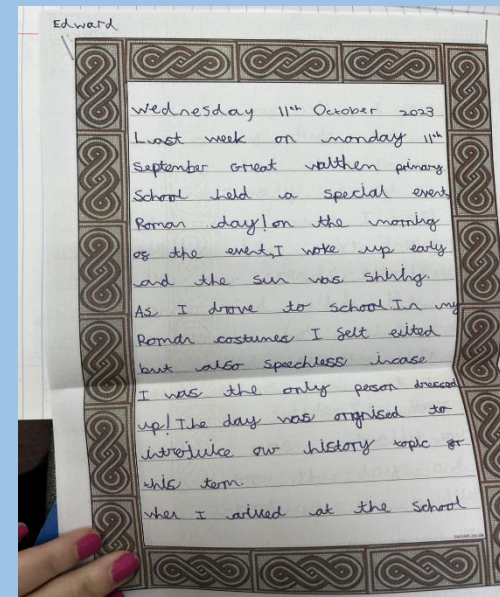 Edward
Wednesday 11th October 2023
Last week on monday 11th
September Great walthen primary
School held a special event,
Roman day! on the morning
os the event, I woke up early
and the sun was shining.
As I drove to school In my
Roman costumes I selt exited
but also speechless incase
I was the only person dressed
up! The day was orgnised to
introjuice our history topic sor
this term.
when I arived at the School